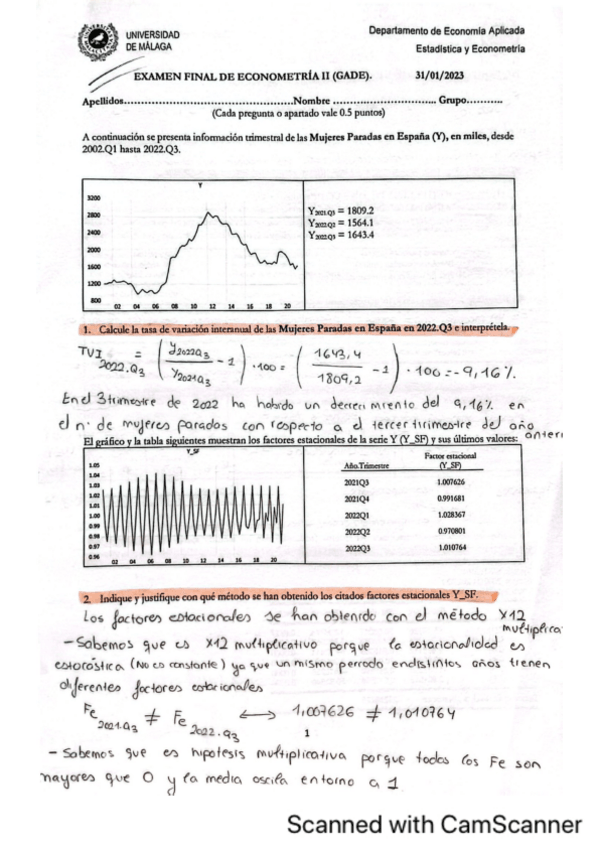 UNIVERSIDAD
DE MÁLAGA
Departamento de Economía Aplicada
Estadística y Econometría
EXAMEN FINAL DE ECONOMETRÍA II (GADE). 31/01/2023
Apellidos..................................................Nombre ............................... Grupo...........
(Cada pregunta o apartado vale 0.5 puntos)
A continuación se presenta información trimestral de las Mujeres Paradas en España (Y), en miles, desde
2002.Q1 hasta 2022.Q3.
Y
3200
2800
2400
2000
1600
1200
800
02 04 06 08 10 12 14 16 18 20
Y2021Q3 = 1809.2
Y2022Q2 = 1564.1
Y2022Q3 = 1643.4
1. Calcule la tasa de variación interanual de las Mujeres Paradas en España en 2022.Q3 e interprétela.
TVI 2022.Q3 = (Y2022Q3 / Y2021Q3 - 1) ·100 = (1643,4 / 1809,2 - 1) · 100 = -9,16%.
En el 3 trimestre de 2022 ha habido un decrecimiento del 9,16% en
el nº de mujeres parados con respecto a el tercer trimestre del año
anteri
El gráfico y la tabla siguientes muestran los factores estacionales de la serie Y (Y_SF) y sus últimos valores:
Y_SF
1.05
1.04
1.03
1.02
1.01
1.00
0.99
0.98
0.97
0.96
02 04 06 08 10 12 14 16 18 20
Factor estacional
Año.Trimestre (Y_SF)
2021Q3 1.007626
2021Q4 0.991681
2022Q1 1.028367
2022Q2 0.970801
2022Q3 1.010764
2. Indique y justifique con qué método se han obtenido los citados factores estacionales Y_SF.
Los factores estacionales se han obtenido con el método X12
multiplica
- Sabemos que es X12 multiplicativo porque la estacionalidad es
estocástica (No es constante) ya que un mismo periodo endistintos años tienen
diferentes factores estacionales
Fe 2021.Q3 ≠ Fe 2022.Q3 ⟷ 1,007626 ≠ 1,010764
1
- Sabemos que es hipotesis multiplicativa porque todos los Fe son
mayores que 0 y la media oscila entorno a 1.
Scanned with CamScanner